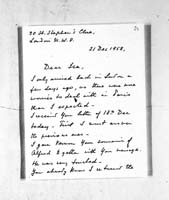 20 St. Stephen's Close,
London N.W.8.
21 Dec 1958.
Dear Lee,
I only arrived back in London a
few days ago, as there were some
worries to deal with in Paris
than I expected.
I received your letter of 18th Dec
today. First I must answer
the previous one.
I gave Norman your souvenir of
Alfred together with your message.
He was very touched.
You already know I returned the